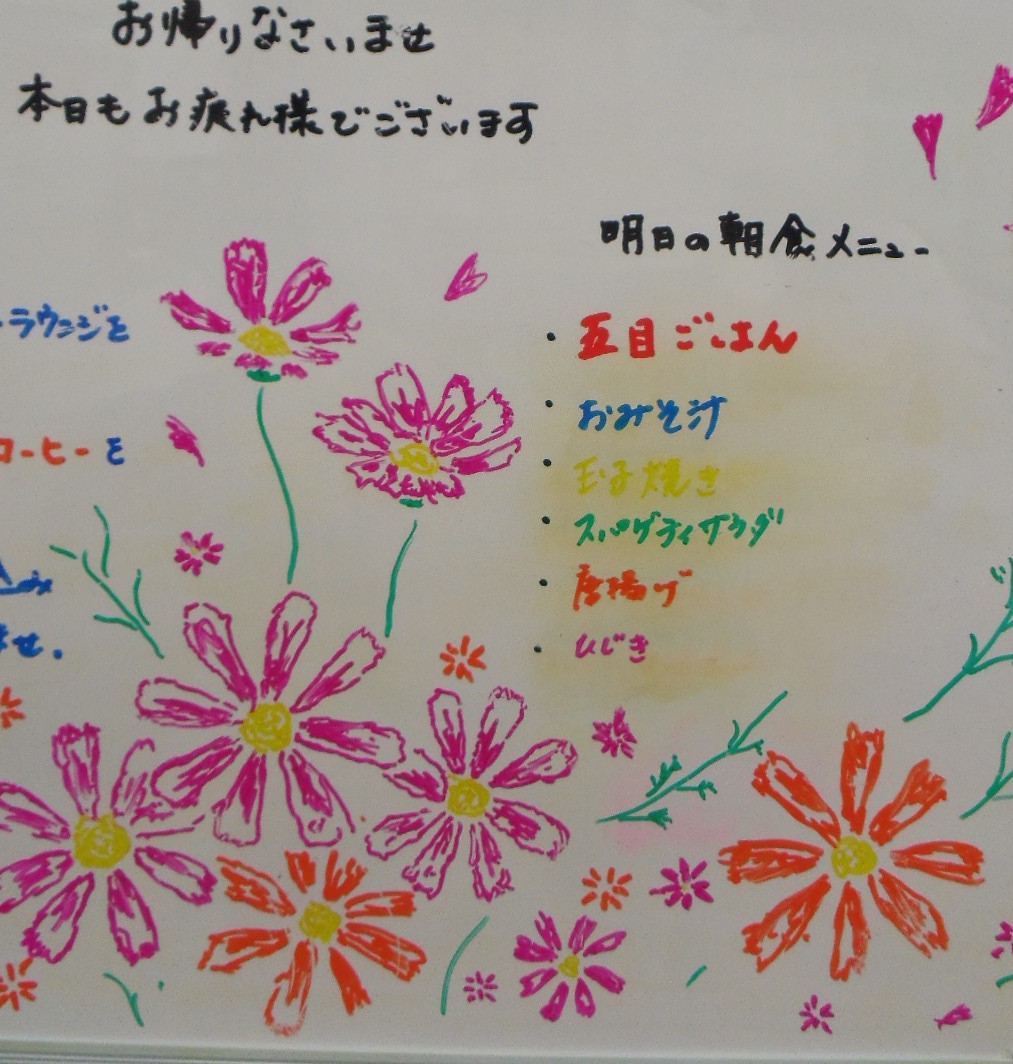 お帰りなさいませ
本日もお疲れ様でございます
ラウンジを
コーヒーを
ませ.
明日の朝食メニュー
・五目ごはん
・おみそ汁
・玉子焼き
・スパゲティサラダ
・唐揚げ
・ひじき